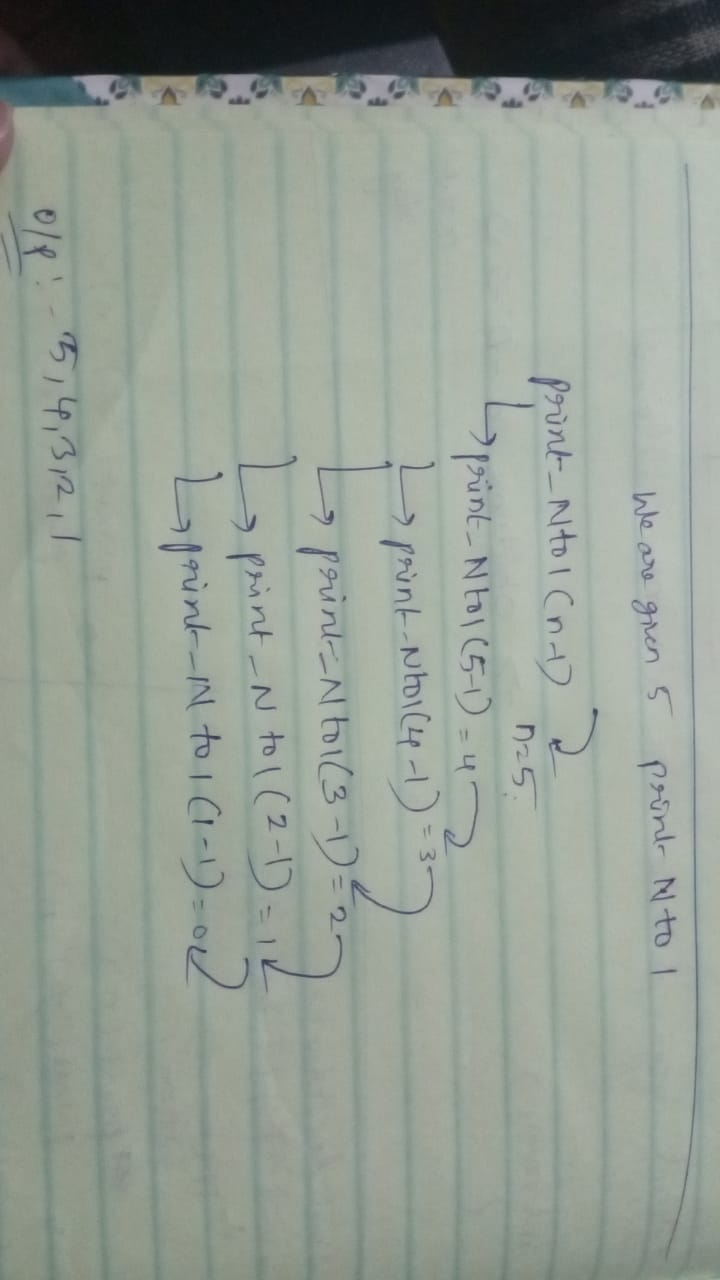 We are given 5 print N to 1
print_Nto1(n-1)
n=5.
↳print_Nto1(5-1)=4
↳print_Nto1(4-1)=3
↳print_Nto1(3-1)=2
↳print_Nto1(2-1)=1
↳print_Nto1(1-1)=0
o/p :- 5,4,3,2,1